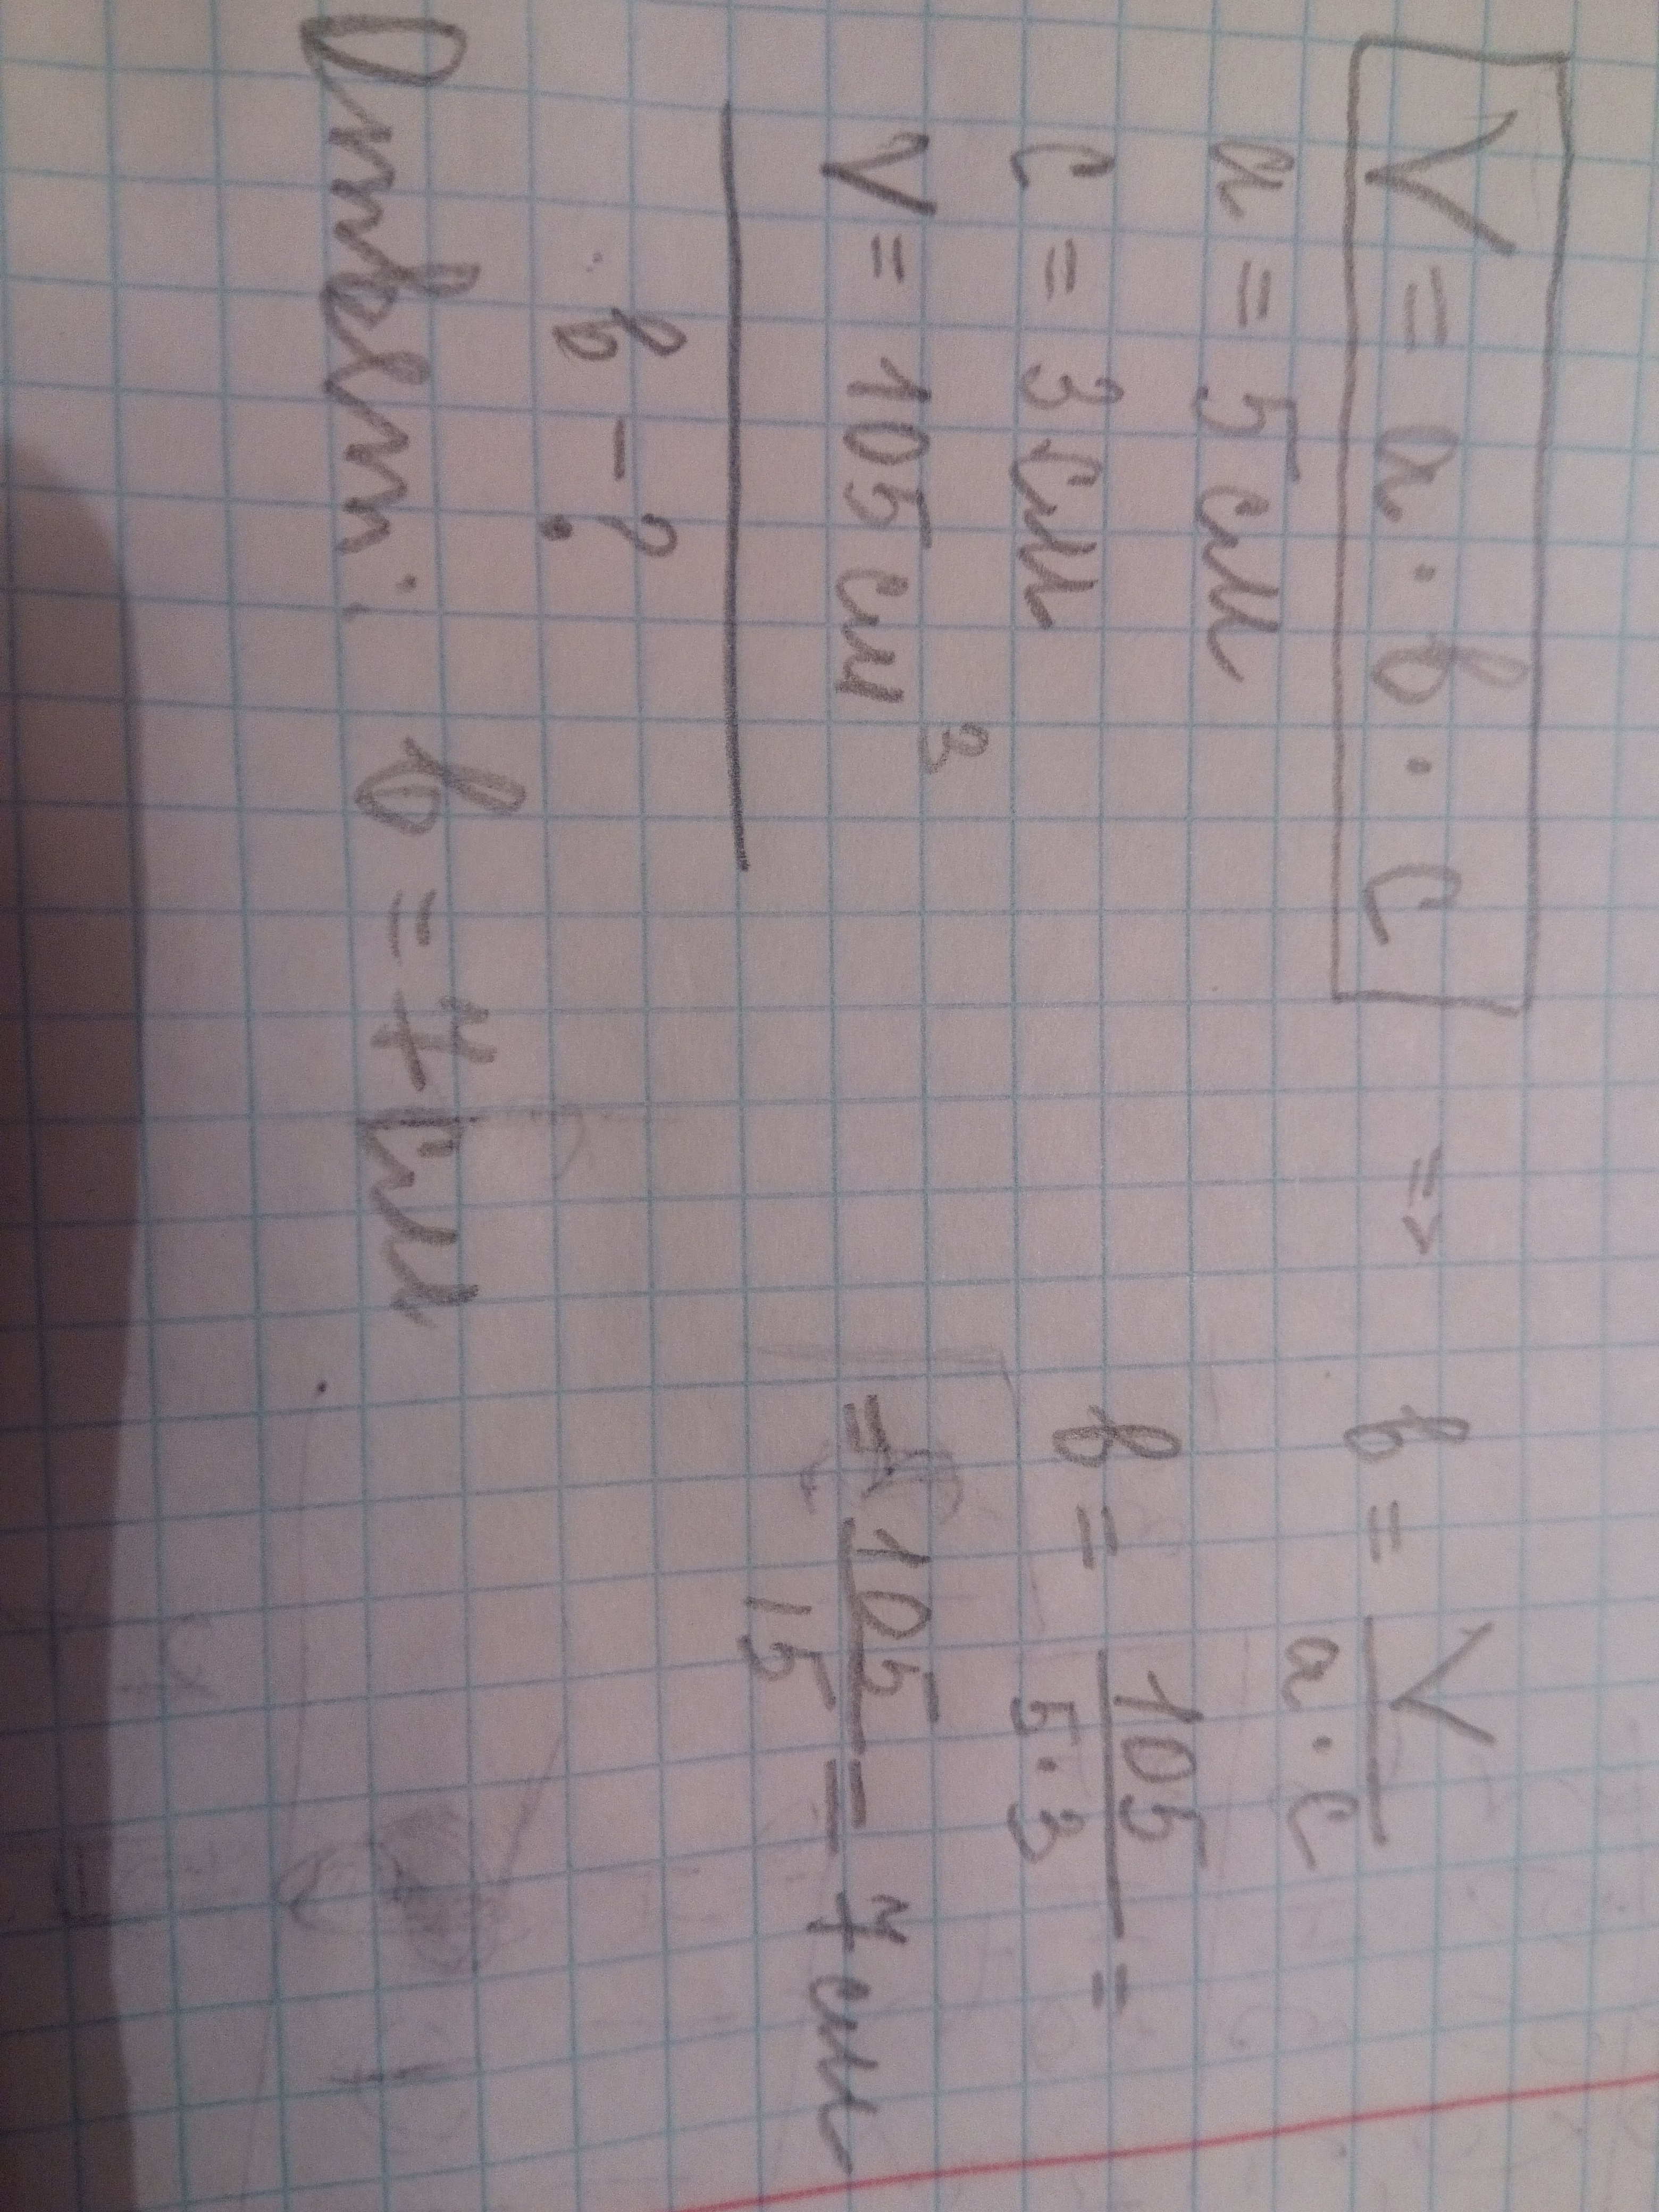 V = a · b · c => b = V / a · c
a = 5 см
c = 3 см b = 105 / 5 · 3 =
V = 105 см³ = 105 / 15 = 7 см
b - ?
Ответ: b = 7 см